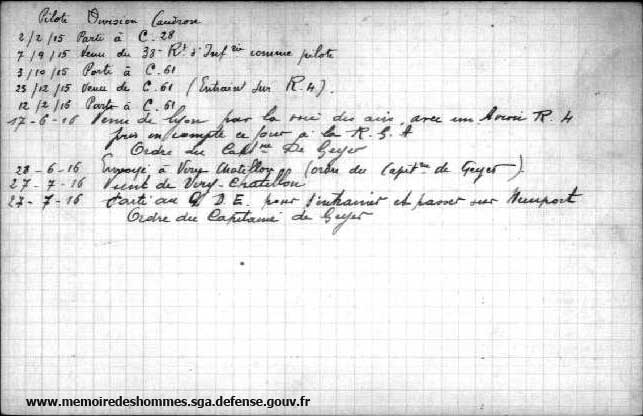 Pilote Division Caudron
2/2/15 Parti à C. 28
7/9/15 Venu du 38e Rt d'Infrie comme pilote
3/10/15 Parti à C. 61
25/12/15 Venu de C. 61 (Entrain sur R. 4).
12/2/16 Parti à C. 61
17-6-16 Venu de Lyon par la voie des airs, avec un Avion R. 4
pris en compte ce jour à la R. G. A
Ordre du Capne De Geyer
28-6-16 Envoyé à Viry Chatillon (ordre du Capitne de Geyer)
27-7-16 Vient de Viry-Chatillon
27-7-16 Parti au D. E. pour s'entrainer et passer sur Nieuport
Ordre du Capitaine de Geyer
www.memoiredeshommes.sga.defense.gouv.fr